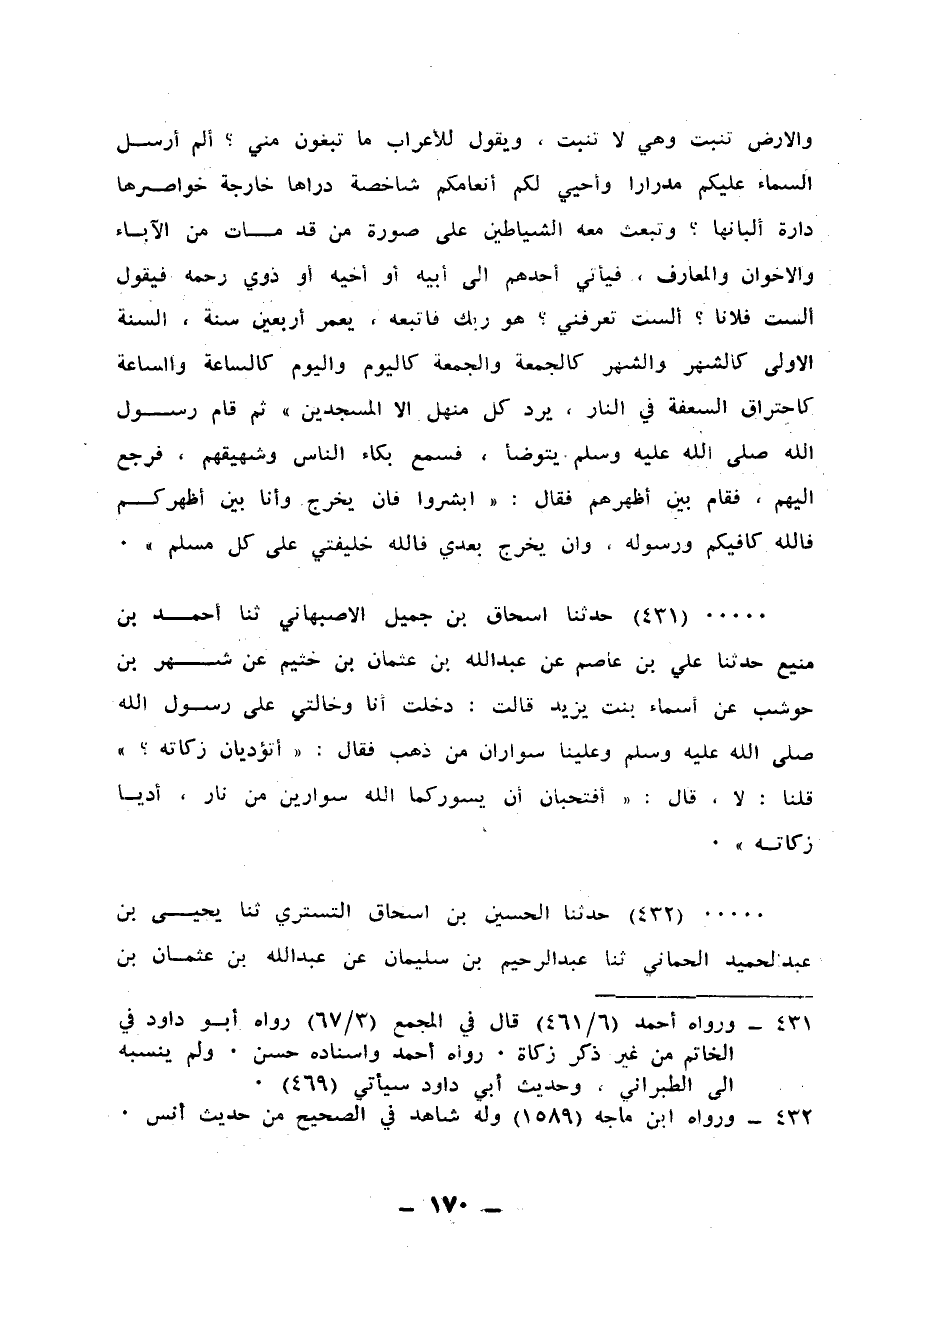 والارض تنبت وهي لا تنبت ، ويقول للأعراب ما تبغون مني ؟ ألم أرسل
السماء عليكم مدرارا وأحيي لكم أنعامكم شاخصة دراها خارجة خواصرها
دارة ألبانها ؟ وتبعث معه الشياطين على صورة من قد مات من الآباء
والاخوان والمعارف ، فيأتي أحدهم الى أبيه أو أخيه أو ذوي رحمه فيقول
ألست فلانا ؟ ألست تعرفني ؟ هو ربك فاتبعه ، يعمر أربعين سنة ، السنة
الاولى كالشهر والشهر كالجمعة والجمعة كاليوم واليوم كالساعة والساعة
كاحتراق السعفة في النار ، يرد كل منهل الا المسجدين » ثم قام رسول
الله صلى الله عليه وسلم يتوضأ ، فسمع بكاء الناس وشهيقهم ، فرجع
اليهم ، فقام بين أظهرهم فقال : « ابشروا فان يخرج وأنا بين أظهركم
فالله كافيكم ورسوله ، وان يخرج بعدي فالله خليفتي على كل مسلم » ٠
٠٠٠٠٠ (٤٣١) حدثنا اسحاق بن جميل الاصبهاني ثنا أحمد بن
منيع حدثنا علي بن عاصم عن عبدالله بن عثمان بن خثيم عن شهر بن
حوشب عن أسماء بنت يزيد قالت : دخلت أنا وخالتي على رسول الله
صلى الله عليه وسلم وعلينا سواران من ذهب فقال : « أتؤديان زكاته ؟ »
قلنا : لا ، قال : « أفتحبان أن يسوركما الله سوارين من نار ، أديا
زكاته » ٠
٠٠٠٠٠ (٤٣٢) حدثنا الحسين بن اسحاق التستري ثنا يحيى بن
عبدالحميد الحماني ثنا عبدالرحيم بن سليمان عن عبدالله بن عثمان بن
٤٣١ ـ ورواه أحمد (٤٦١/٦) قال في المجمع (٦٧/٣) رواه أبو داود في
الخاتم من غير ذكر زكاة ٠ رواه أحمد واسناده حسن ٠ ولم ينسبه
الى الطبراني ، وحديث أبي داود سيأتي (٤٦٩) ٠
٤٣٢ ـ ورواه ابن ماجه (١٥٨٩) وله شاهد في الصحيح من حديث أنس ٠
ـ ١٧٠ ـ